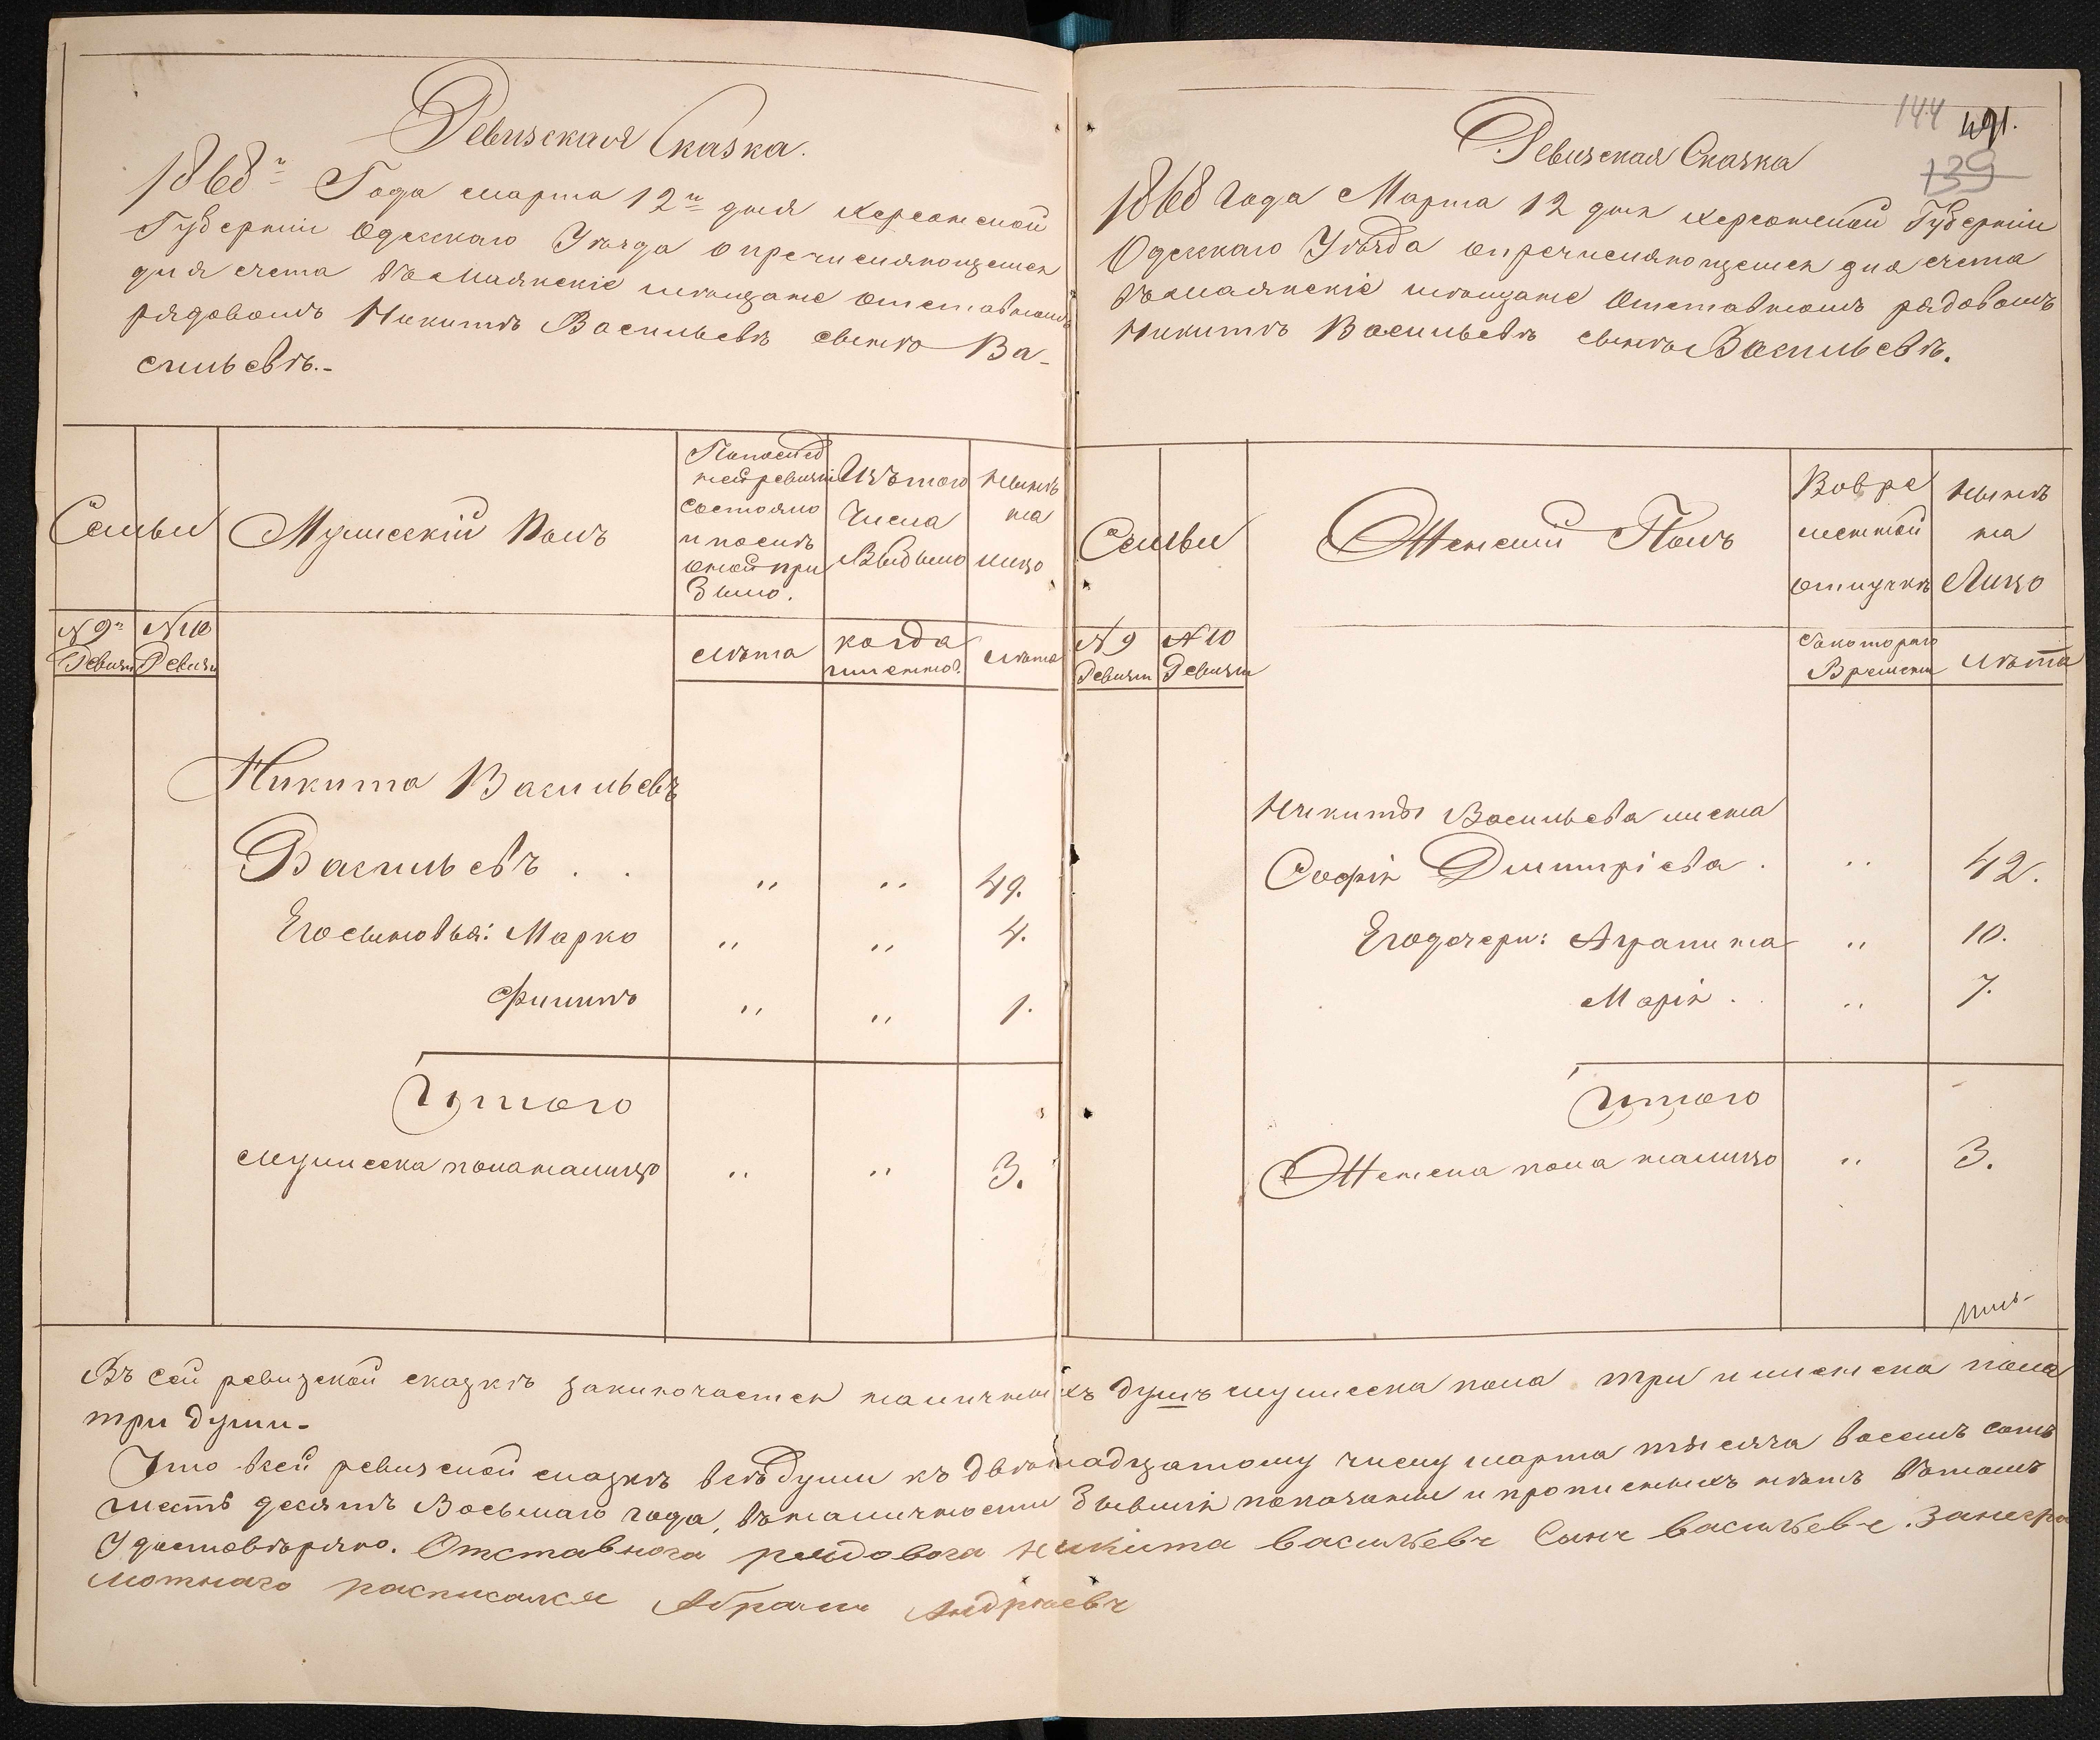 Ревизская Сказка.
1868го Года марта 12го дня Херсонской
Губернии Одесскаго Уѣзда о перечисляющемся
для счета въ Маякские мѣщане отставномъ
рядовомъ Никитѣ Васильевѣ сынѣ Ва-
сильевѣ.-
Семьи
Мужескій Полъ
По послѣд
ней ревизіи
состояло
и послѣ
оной при
было.
Изъ того
Числа
Выбыло
Нынѣ
на
лицо
№ 9й
Ревизи
№ 10
Ревизи
лѣта
когда
именно?
лѣта
Никита Васильевъ
Васильевъ . . " " 49.
Его сыновья: Марко " " 4.
Филипъ " " 1.
Итого
мужеска пола налицо " " 3.
144 491.
139
Ревизская Сказка
1868 Года Марта 12 дня Херсонской Губерніи
Одесскаго Уѣзда о перечисляющемся для счета
въ Маякские мѣщане Отставномъ рядовомъ
Никитѣ Васильевѣ сынѣ Васильевѣ.
Семьи
Женский Полъ
Во вре
менной
отлучкѣ
Нынѣ
на
Лицо
№ 9
Ревизи
№ 10
Ревизи
Съ котораго
Времени
лѣта
Никиты Васильева жена
Софія Димитріева . " 42.
Его дочери: Агрипина " 10.
Марія . " 7.
Итого
Женска пола налицо " 3.
Въ сей ревизской сказкѣ заключается наличныхъ душъ мужеска пола три и женска пола
три души.
Что въ сей ревизской сказкѣ всѣ души къ двѣнадцатому числу марта тысяча восемь сотъ
шестьдесятъ Восьмаго года, въ наличности бывшія показаны и прописныхъ нѣтъ въ томъ
Удостовѣряю. Отставнога рядовога Никита Васильевъ Сынъ Васильевъ. За негра
мотнаго расписался Абрамъ Андрѣевъ